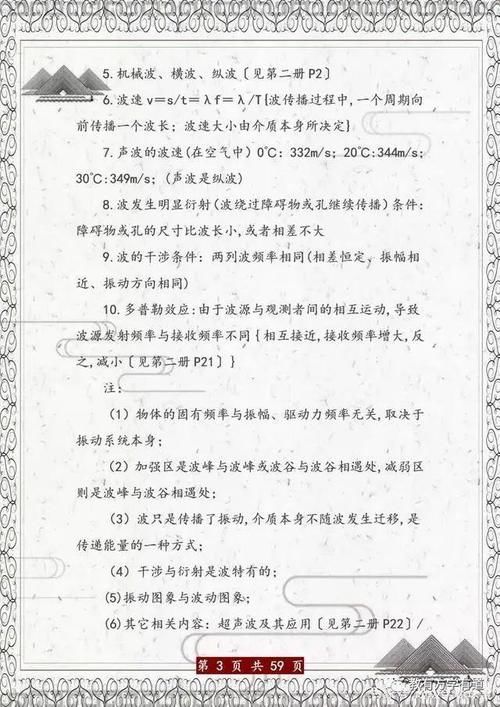 5. 机械波、横波、纵波〔见第二册P2〕
6. 波速v=s/t=λf=λ/T{波传播过程中,一个周期向
前传播一个波长；波速大小由介质本身所决定}
7. 声波的波速(在空气中) 0℃: 332m/s；20℃:344m/s；
30℃:349m/s；(声波是纵波)
8. 波发生明显衍射(波绕过障碍物或孔继续传播)条件：
障碍物或孔的尺寸比波长小,或者相差不大
9. 波的干涉条件：两列波频率相同(相差恒定、振幅相
近、振动方向相同)
10. 多普勒效应:由于波源与观测者间的相互运动,导致
波源发射频率与接收频率不同{相互接近,接收频率增大,反
之,减小〔见第二册P21〕}
注：
（1）物体的固有频率与振幅、驱动力频率无关,取决于
振动系统本身；
（2）加强区是波峰与波峰或波谷与波谷相遇处,减弱区
则是波峰与波谷相遇处；
（3）波只是传播了振动,介质本身不随波发生迁移,是
传递能量的一种方式；
（4）干涉与衍射是波特有的；
(5)振动图象与波动图象；
(6)其它相关内容：超声波及其应用〔见第二册P22〕/
第 3 页 共 59 页